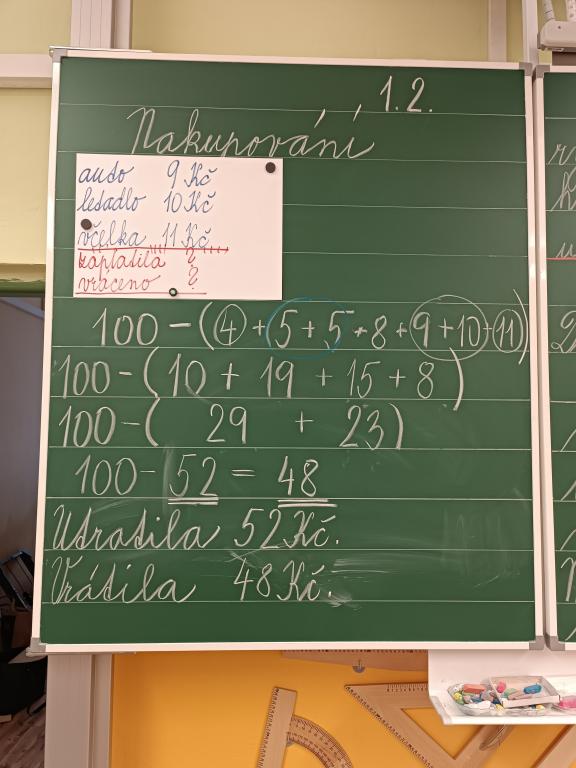 1. 2.
Nakupování
auto 9 Kč
letadlo 10 Kč
včelka 11 Kč
zaplatila ?
vráceno ?
100 - (4 + 5 + 5 + 8 + 9 + 10 + 11)
100 - (10 + 19 + 15 + 8)
100 - ( 29 + 23)
100 - 52 = 48
Utratila 52 Kč.
Vrátila 48 Kč.